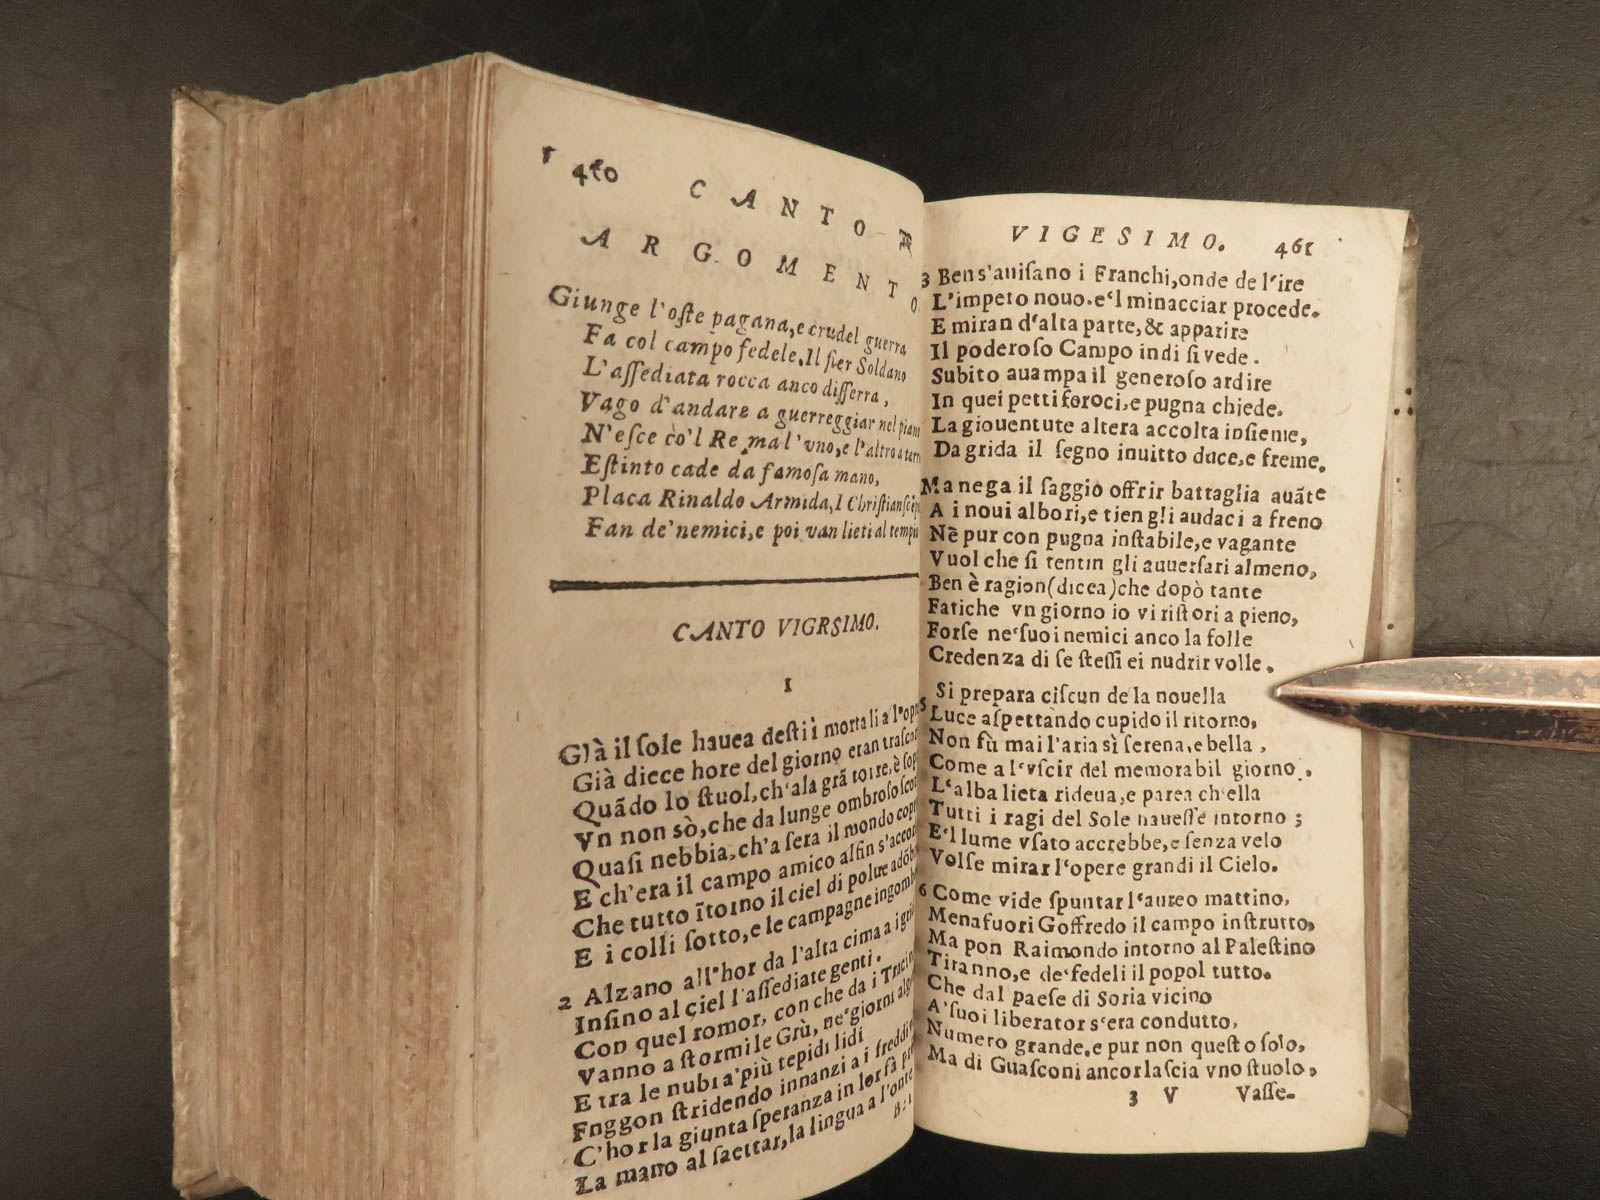 460 CANTO
ARGOMENTO.
Giunge l'oſte pagana, e crudel guerra
Fa col campo fedele, Il fier Soldano
L'aſſediata rocca anco diſſerra,
Vago d'andare a guerreggiar nel pian
N'eſce cò'l Re, ma l'vno, e l'altro a terr
Eſtinto cade da famoſa mano,
Placa Rinaldo Armida, I Chriſtian
Fan de' nemici, e poi van lieti al tempi
CANTO VIGRSIMO.
I
Già il ſole hauea deſti i mortali a l'op
Già diece hore del giorno eran traſco
Quãdo lo ſtuol, ch'ala grã torre, è ſop
Vn non sò, che da lunge ombroſo ſco
Quaſi nebbia, ch'a ſera il mondo cop
E ch'era il campo amico alfin s'accor
Che tutto ĩtorno il ciel di polue adõb
E i colli ſotto, e le campagne ingomb
2 Alzano all'hor da l'alta cima a i gri
Inſino al ciel l'aſſediate genti.
Con quel romor, con che da i Traci
Vanno a ſtormi le Grù, ne' giorni alg
E tra le nubi a' più tepidi lidi
Fnggon ſtridendo innanzi a i freddi
C'hor la giunta ſperanza in lor fà pr
La mano al ſaettar, la lingua a l'onte
VIGESIMO. 461
3 Ben s'auiſano i Franchi, onde de l'ire
L'impeto nouo. e'l minacciar procede.
E miran d'alta parte, & apparire
Il poderoſo Campo indi ſi vede.
Subito auampa il generoſo ardire
In quei petti feroci, e pugna chiede.
La giouentute altera accolta inſieme,
Da grida il ſegno inuitto duce, e freme.
Ma nega il ſaggio offrir battaglia auãte
A i noui albori, e tien gli audaci a freno
Nè pur con pugna inſtabile, e vagante
Vuol che ſi tentin gli auuerſari almeno,
Ben è ragion (dicea) che dopò tante
Fatiche vn giorno io vi riſtori a pieno,
Forſe ne' ſuoi nemici anco la folle
Credenza di ſe ſteſſi ei nudrir volle.
5 Si prepara ciſcun de la nouella
Luce aſpettando cupido il ritorno,
Non fù mai l'aria sì ſerena, e bella,
Come a l'vſcir del memorabil giorno.
L'alba lieta rideua, e parea ch'ella
Tutti i ragi del Sole haueſſe intorno;
E'l lume vſato accrebbe, e ſenza velo
Volſe mirar l'opere grandi il Cielo.
6 Come vide ſpuntar l'aureo mattino,
Mena fuori Goffredo il campo inſtrutto,
Ma pon Raimondo intorno al Paleſtino
Tiranno, e de' fedeli il popol tutto.
Che dal paeſe di Soria vicino
A' ſuoi liberator s'era condutto,
Numero grande, e pur non queſto ſolo,
Ma di Guaſconi ancor laſcia vno ſtuolo,
3 V Vaſſe-